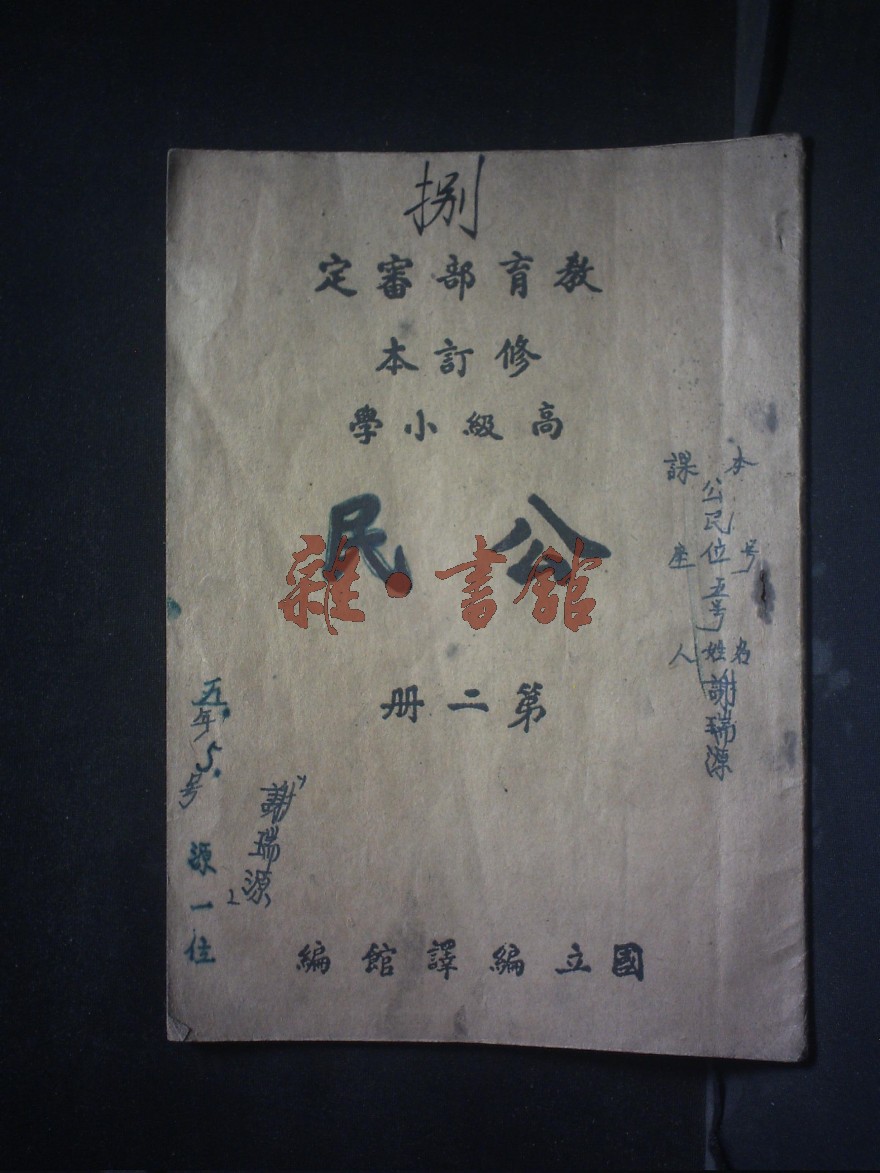 捌
教育部審定
修訂本
高級小學
公民
雜·書館
第二册
國立編譯館編
本課
公民位五号
号座
名姓人
謝瑞源
五年5号
源一位
謝瑞源